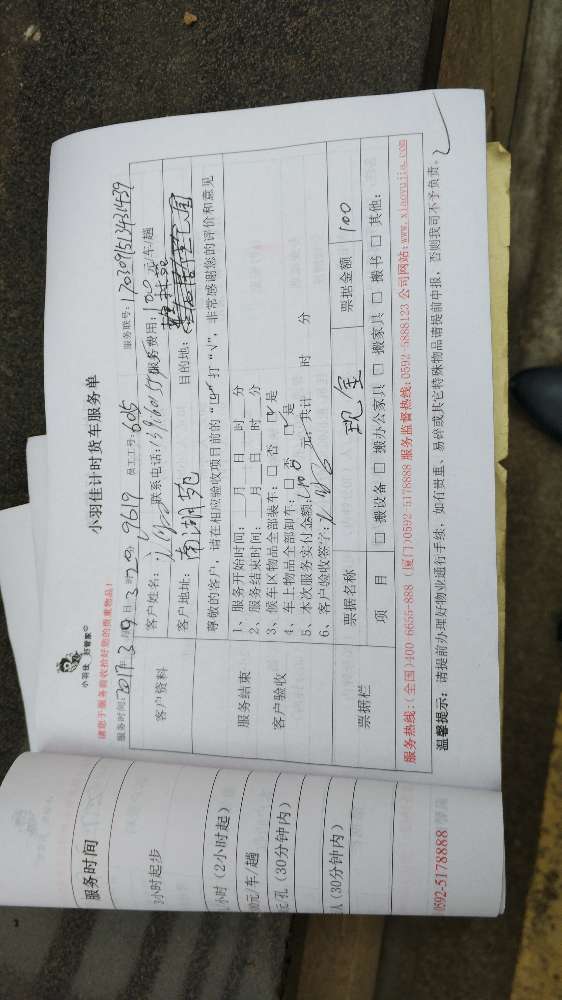 小羽佳 好管家
小羽佳计时货车服务单
请您于服务前收拾好您的贵重物品!
服务时间: 2017 年 3 月 9 日 3 时 29 9619 员工工号: 605 服务联号: 17030915343439
客户资料
客户姓名: 联系电话: 服务费用: 100 元/车/趟
客户地址: 南湖苑 目的地:
尊敬的客户, 请在相应验收项目前的“口”打“√”, 非常感谢您的评价和意见
服务结束
客户验收
1、服务开始时间: 月 日 时 分
2、服务结束时间: 月 日 时 分
3、候车区物品全部装车: □ 否 是
4、车上物品全部卸车: □ 否 是
5、本次服务实付金额: 100 元, 共计 时 分
6、客户验收签字:
票据栏
票据名称 现金 票据金额 100
项 目 □ 搬设备 □ 搬办公家具 □ 搬家具 □ 搬书 □ 其他:
服务热线: (全国)400-6655-888 (厦门)0592-5178888 服务监督热线: 0592-5888123 公司网站: www.xiaoyujia.com
温馨提示: 请提前办理好物业通行手续, 如有贵重、易碎或其它特殊物品请提前申报, 否则我司不予负责。
服务时间
3小时起步
小时 (2小时起)
00元/车/趟
元/孔 (30分钟内)
人 (30分钟内)
0592-5178888